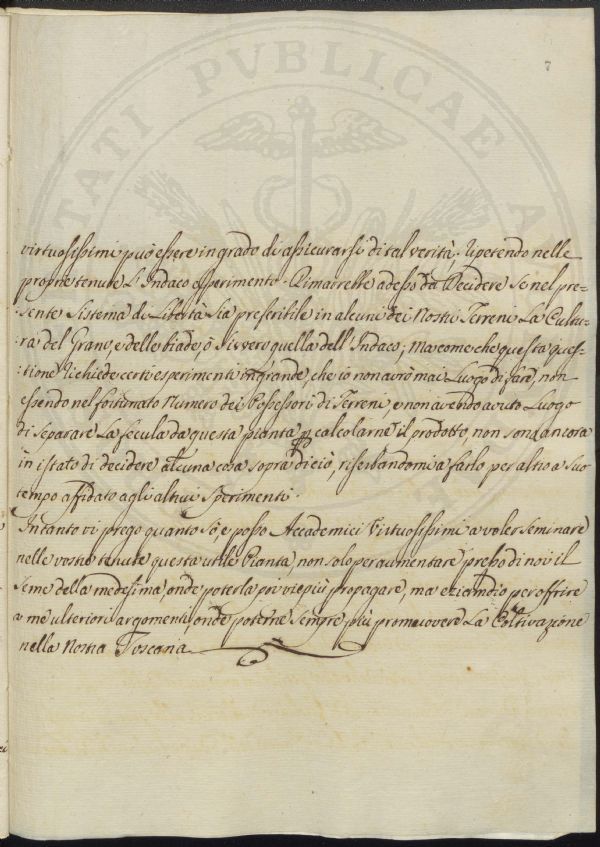 7
virtuosissimi può essere in grado di assicurarsi di tal verità. Ripetendo nelle
proprie tenute L'Indaco esperimento. Rimarrebbe adesso da Decidere se nel pre=
=sente Sistema di Libertà Sia preferibile in alcuni dei Nostri Terreni La Cultu=
=ra del Grano, e delle biade, ò sivvero quella dell'Indaco; Ma come che questa ques=
=tione richiede certi esperimenti in grande, che io non avrò mai Luogo di fare, non
essendo nel fortunato Numero dei Possessori di Terreni, e non avendo avuto Luogo
di Separare La fecula da questa pianta p calcolarne il prodotto, non sono ancora
in istato di decidere alcuna cosa sopra di ciò, riserbandomi a farlo per altro a Suo
tempo affidato agli altrui Sperimenti.
Intanto vi prego quanto sò, e posso Accademici Virtuosissimi a voler seminare
nelle vostre tenute questa utile Pianta, non solo per aumentare presso di noi il
Seme della medesima, onde poterla poi viepiù propagare, ma eziamdio per offrire
a me ulteriori argomenti, onde poterne Sempre più promuovere La Coltivazione
nella Nostra Toscana
PUBLICAE